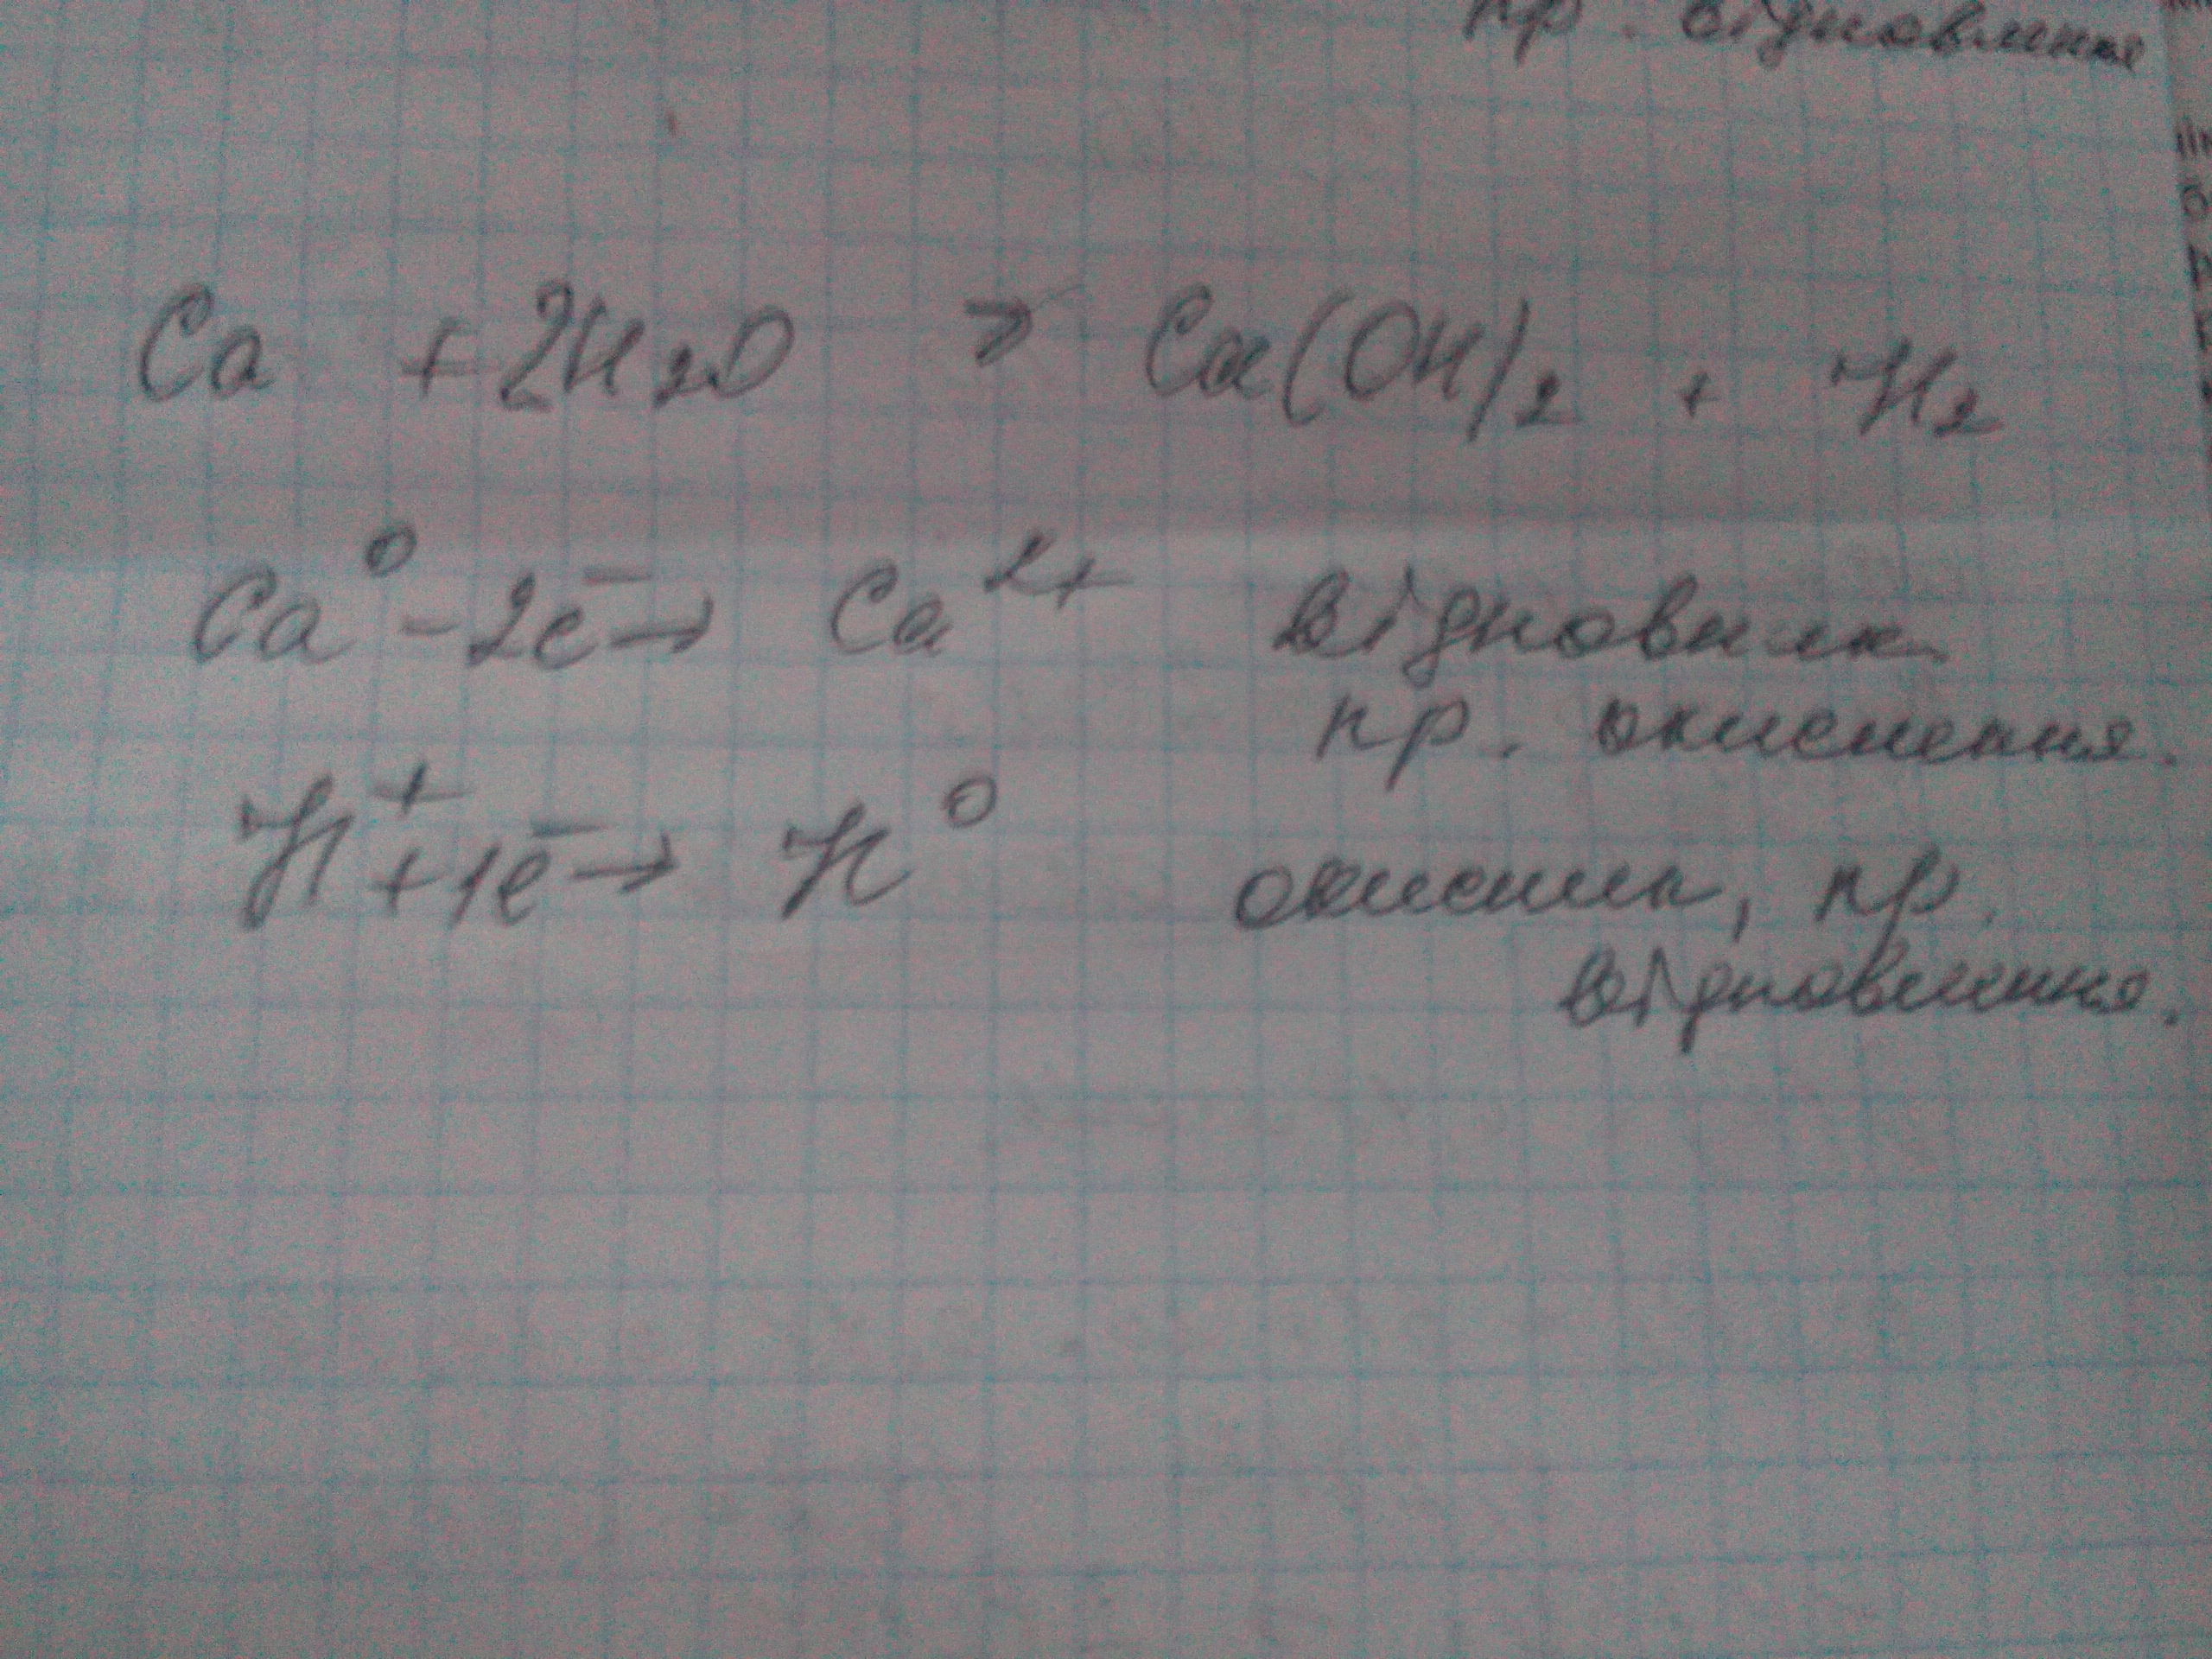 пр. відновлення
Ca + 2H₂O → Ca(OH)₂ + H₂
Ca⁰ - 2e̅ → Ca²⁺ відновник
пр. окиснення.
H⁺ + 1e̅ → H⁰ окисник, пр.
відновлення.